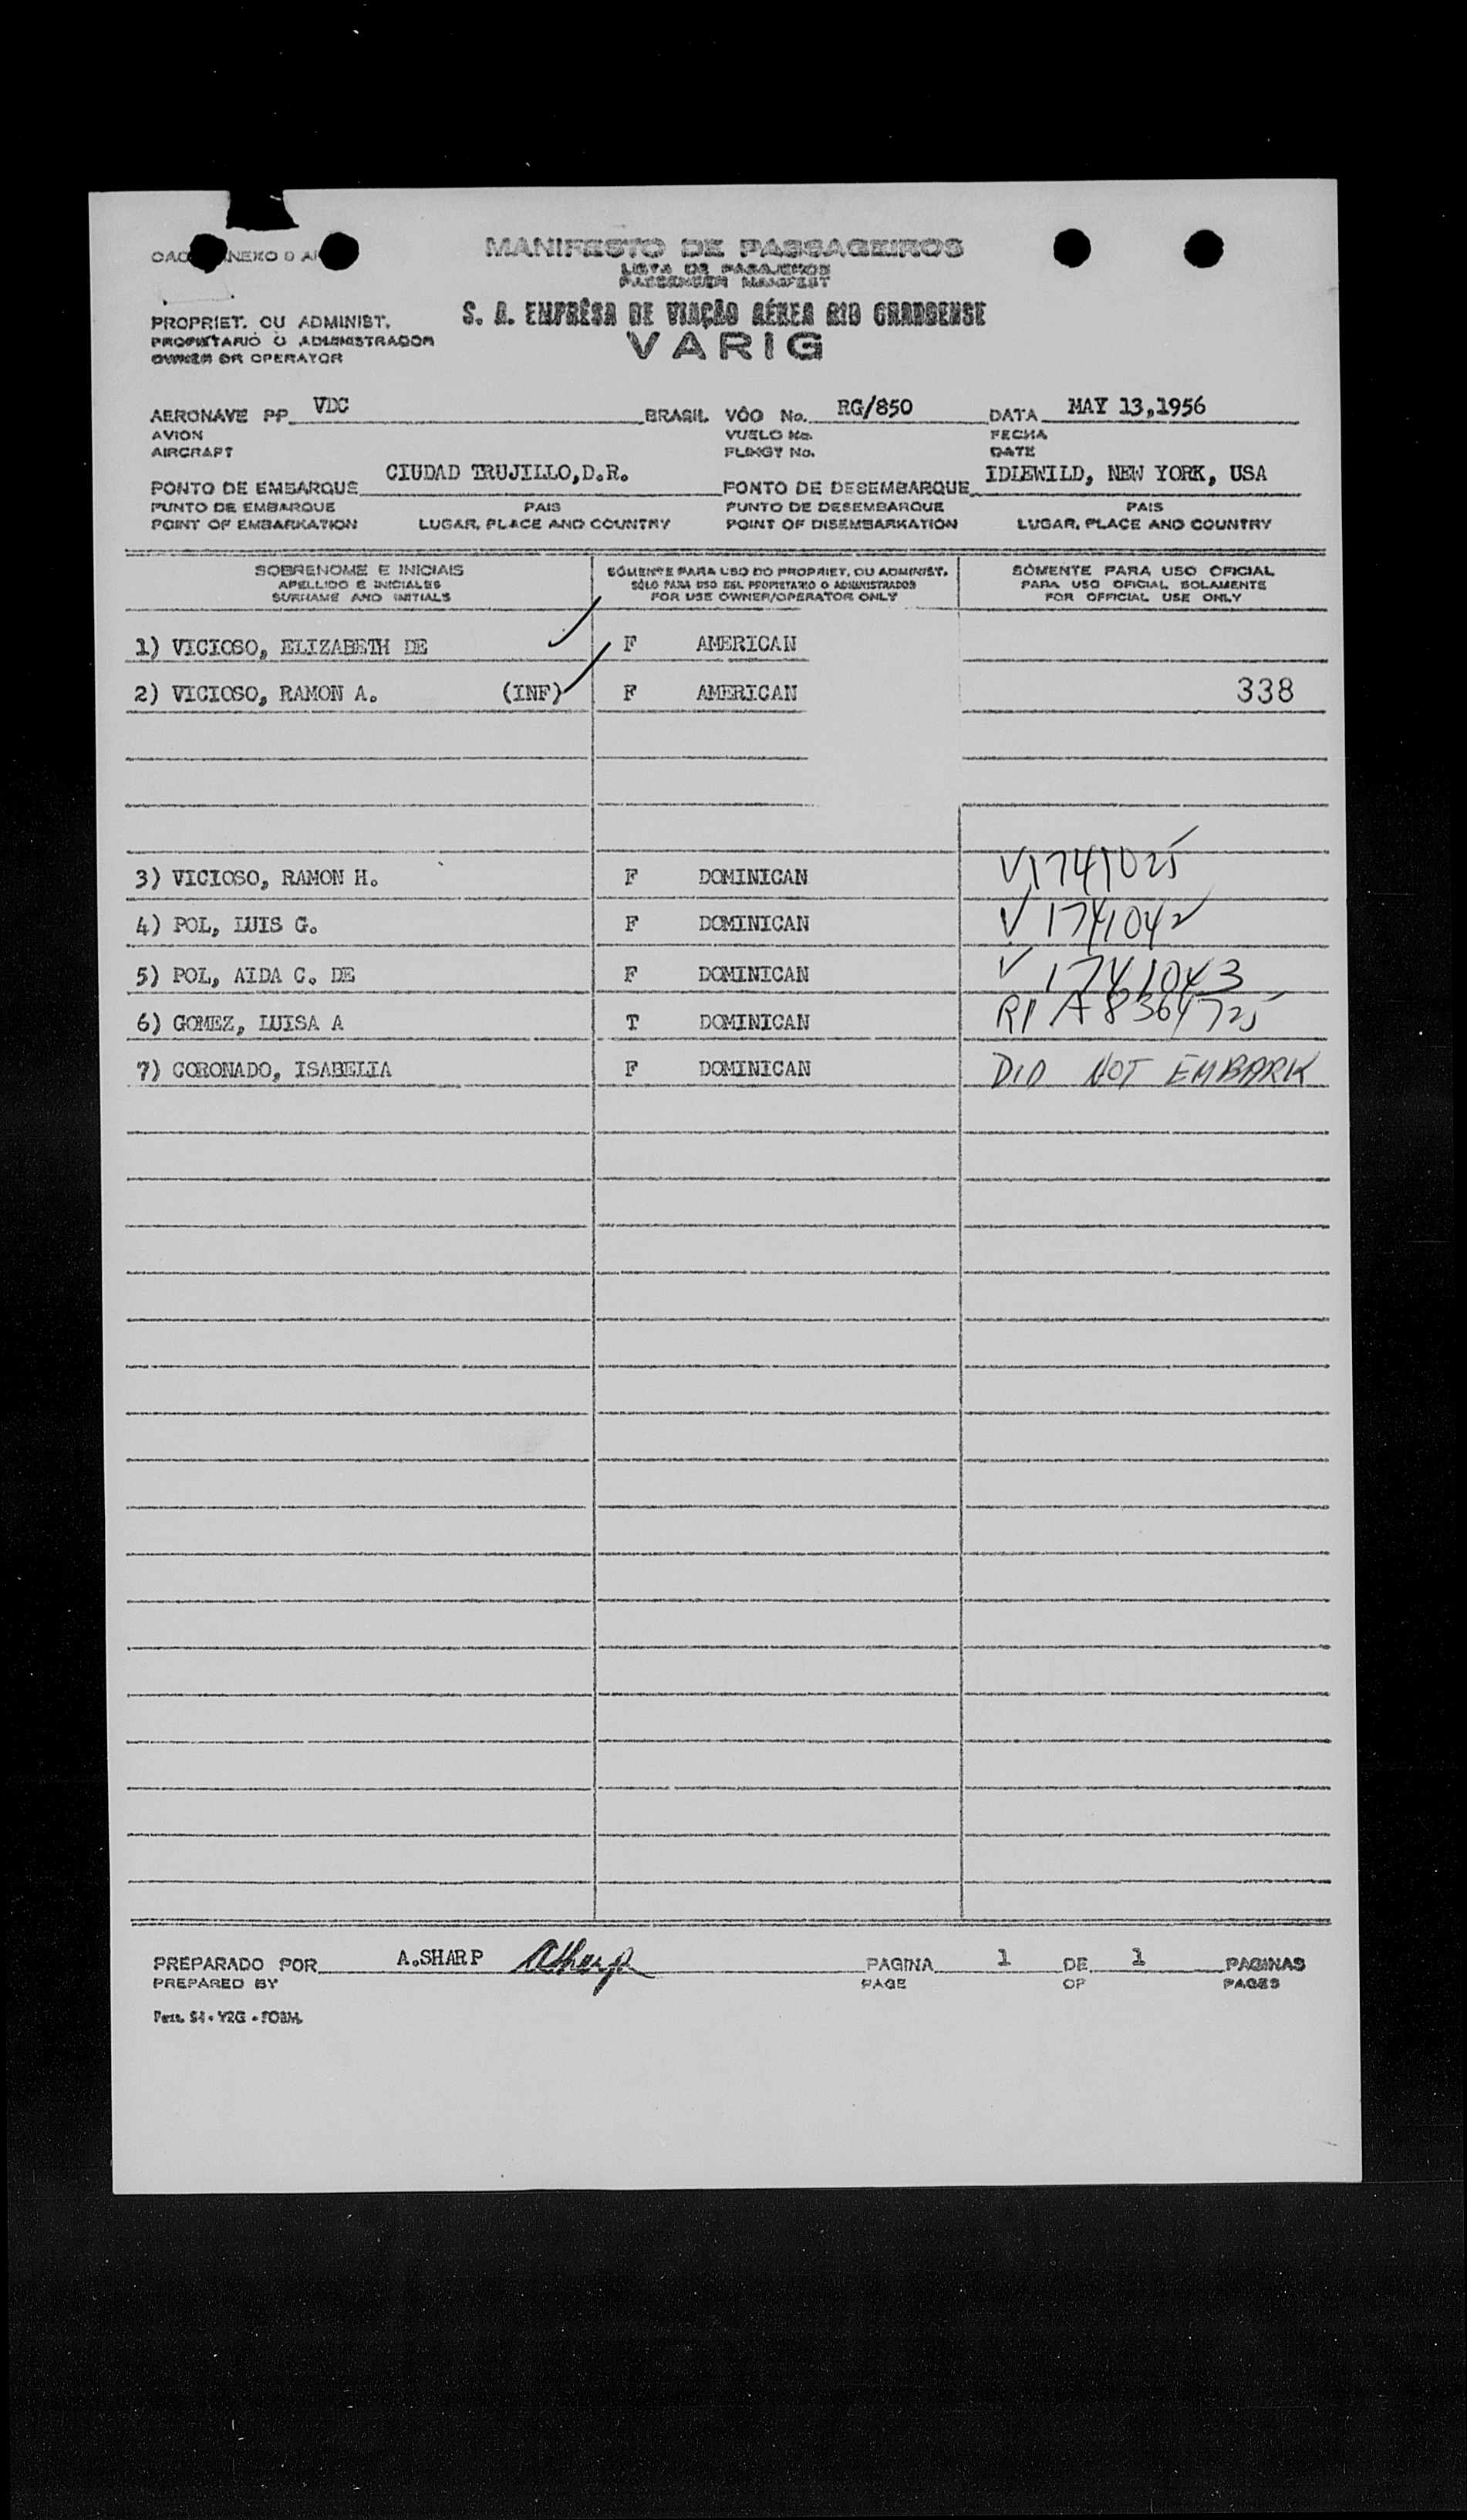 MANIFESTO DE PASSAGEIROS
LISTA DE PASAJEROS
PASSENGER MANIFEST
S. A. EMPRÊSA DE VIAÇÃO AÉREA RIO GRANDENSE
VARIG
PROPRIET. OU ADMINIST.
PROPIETARIO O ADMINISTRADOR
OWNER OR OPERATOR
AERONAVE PP VDC BRASIL VÔO No. RG/850 DATA MAY 13,1956
AVION VUELO No. FECHA
AIRCRAFT FLINGT No. DATE
PONTO DE EMBARQUE CIUDAD TRUJILLO,D.R. PONTO DE DESEMBARQUE IDLEWILD, NEW YORK, USA
PUNTO DE EMBARQUE PAIS PUNTO DE DESEMBARQUE PAIS
POINT OF EMBARKATION LUGAR, PLACE AND COUNTRY POINT OF DISEMBARKATION LUGAR, PLACE AND COUNTRY
SOBRENOME E INICIAIS SÓMENTE PARA USO DO PROPRIET. OU ADMINIST. SÓMENTE PARA USO OFICIAL
APELLIDO E INICIALES SÓLO PARA USO DEL PROPIETARIO O ADMINISTRADOR PARA USO OFICIAL SOLAMENTE
SURNAME AND INITIALS FOR USE OWNER/OPERATOR ONLY FOR OFFICIAL USE ONLY
1) VICIOSO, ELIZABETH DE F AMERICAN
2) VICIOSO, RAMON A. (INF) F AMERICAN 338
3) VICIOSO, RAMON H. F DOMINICAN V1741025
4) POL, LUIS G. F DOMINICAN V 1741042
5) POL, AIDA C. DE F DOMINICAN V 1741043
6) GOMEZ, LUISA A T DOMINICAN RP A8364725
7) CORONADO, ISABELIA F DOMINICAN DID NOT EMBARK
PREPARADO POR A.SHARP ASharp PAGINA 1 DE 1 PAGINAS
PREPARED BY PAGE OF PAGES